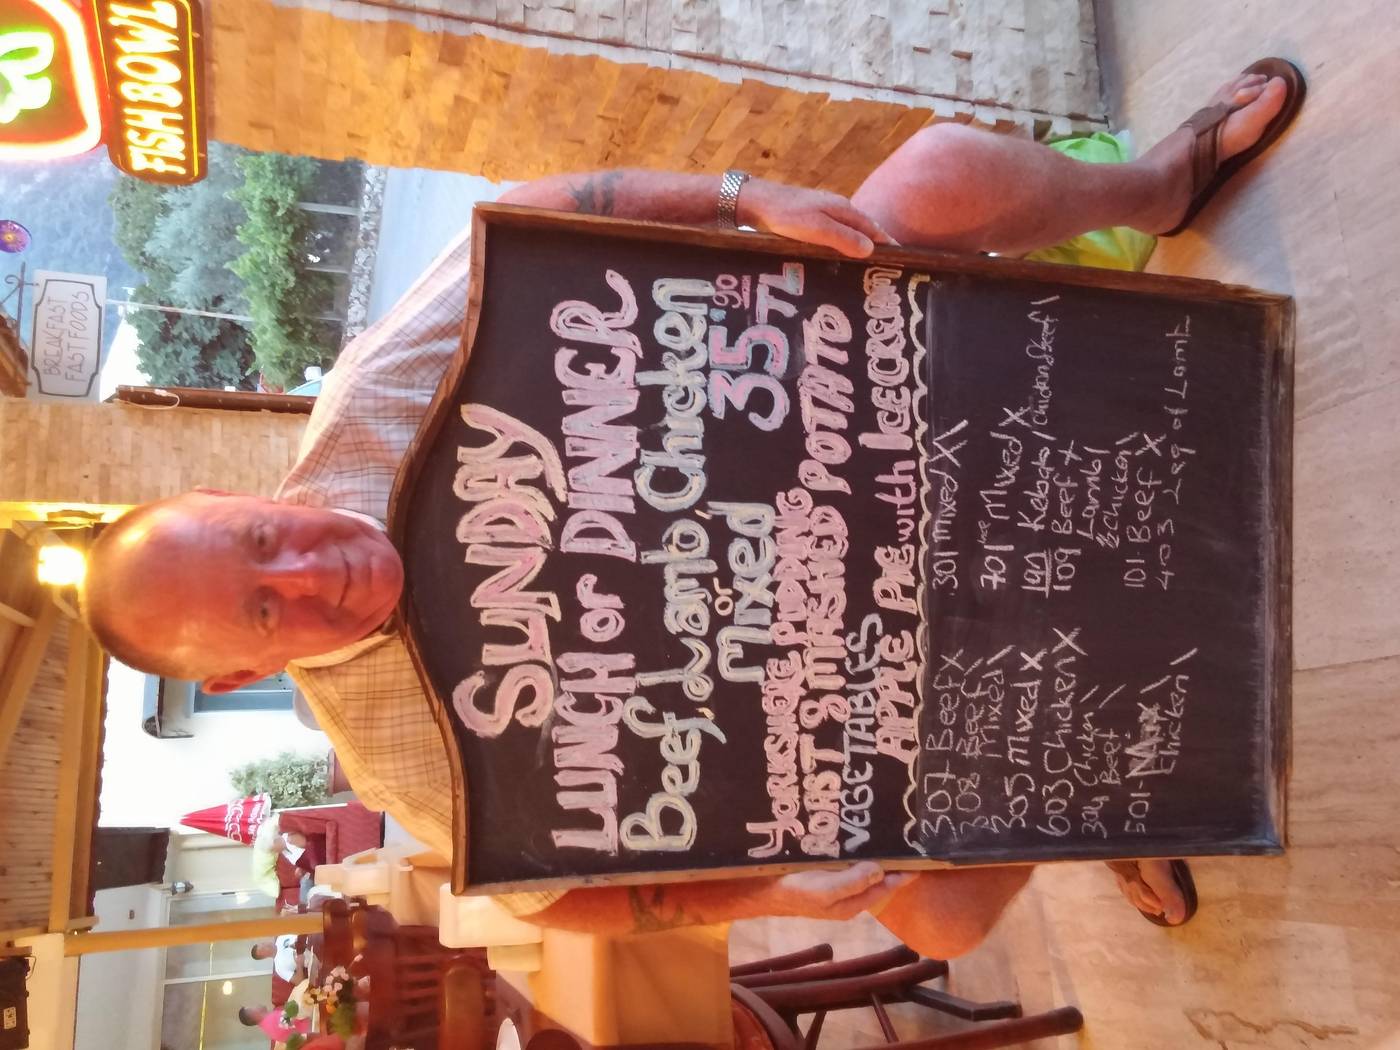 FISH BOWL
BREAKFAST
FAST FOODS
SUNDAY
LUNCH or DINNER
Beef, Lamb, Chicken
or
Mixed
35.90 TL
YORKSHIRE PUDDING
ROAST & MASHED POTATO
VEGETABLES
APPLE PIE with ICE CREAM
307 Beef X
308 Beef \
Mixed \
205 Mixed X
603 Chicken X
304 Chicken \
Beef \
501 - Chicken \
301 Mixed X \
701 Mixed X
109 Beef X
Lamb \
& chicken \
101 - Beef X
403 Leg of Lamb